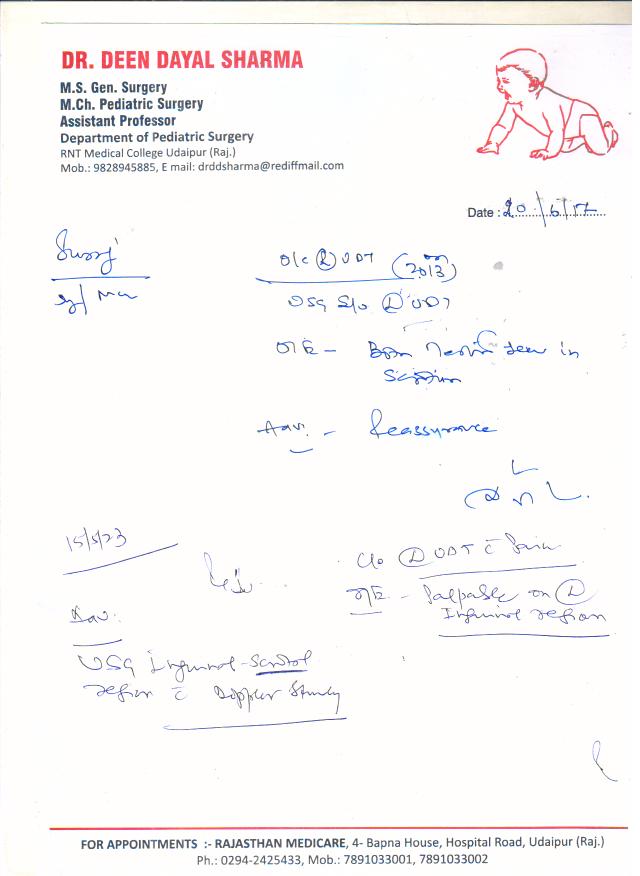 DR. DEEN DAYAL SHARMA
M.S. Gen. Surgery
M.Ch. Pediatric Surgery
Assistant Professor
Department of Pediatric Surgery
RNT Medical College Udaipur (Raj.)
Mob.: 9828945885, E mail: drddsharma@rediffmail.com
Date : 20/6/17
UDT (2013)
USG S/o UDT
O/E - Both Testis seen in
Scrotum
Adv. - Reassurance
15/5/23
C/o UDT c̄ Pain
O/E - Palpable on
Inguinal region
Adv.
USG Inguino-Scrotal
region c̄ Doppler Study
FOR APPOINTMENTS :- RAJASTHAN MEDICARE, 4- Bapna House, Hospital Road, Udaipur (Raj.)
Ph.: 0294-2425433, Mob.: 7891033001, 7891033002